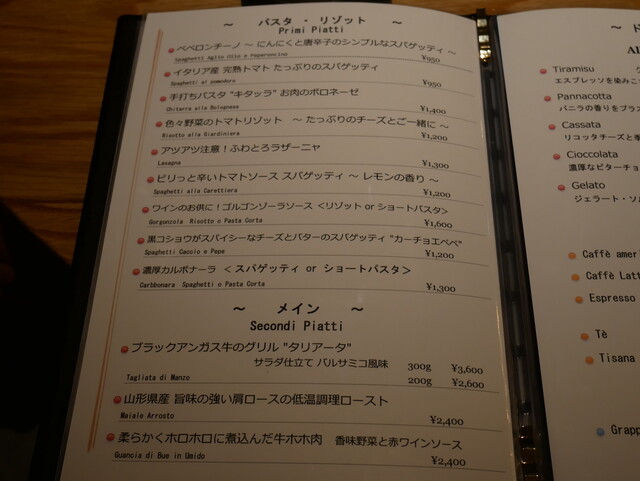 ～ パスタ ・ リゾット ～
Primi Piatti
ペペロンチーノ ～ にんにくと唐辛子のシンプルなスパゲッティ ～
Spaghetti Aglio Olio e Peperoncino ¥950
イタリア産 完熟トマト たっぷりのスパゲッティ
Spaghetti al pomodoro ¥950
手打ちパスタ "キタッラ" お肉のボロネーゼ
Chitarra alla Bolognese ¥1,400
色々野菜のトマトリゾット ～ たっぷりのチーズとご一緒に ～
Risotto alla Giardiniera ¥1,200
アツアツ注意！ふわとろラザーニャ
Lasagna ¥1,300
ピリっと辛いトマトソース スパゲッティ ～ レモンの香り ～
Spaghetti alla Carettiera ¥1,200
ワインのお供に！ゴルゴンゾーラソース ＜リゾット or ショートパスタ＞
Gorgonzola Risotto o Pasta Corta ¥1,600
黒コショウがスパイシーなチーズとバターのスパゲッティ "カーチョエペペ"
Spaghetti Caccio e Pepe ¥1,200
濃厚カルボナーラ ＜ スパゲッティ or ショートパスタ＞
Carbbonera Spaghetti o Pasta Corta ¥1,300
～ メイン ～
Secondi Piatti
ブラックアンガス牛のグリル "タリアータ"
サラダ仕立て バルサミコ風味 300g ¥3,600
Tagliata di Manzo 200g ¥2,600
山形県産 旨味の強い肩ロースの低温調理ロースト
Maiale Arrosto ¥2,400
柔らかくホロホロに煮込んだ牛ホホ肉 香味野菜と赤ワインソース
Guancia di Bue in Umido ¥2,400
～ ド
Tiramisu
エスプレッソを染みこ
Pannacotta
バニラの香りをプラス
Cassata
リコッタチーズと季
Cioccolata
濃厚なビターチョ
Gelato
ジェラート・ソル
Caffè ameri
Caffè Latt
Espresso
Tè
Tisana
Grapp